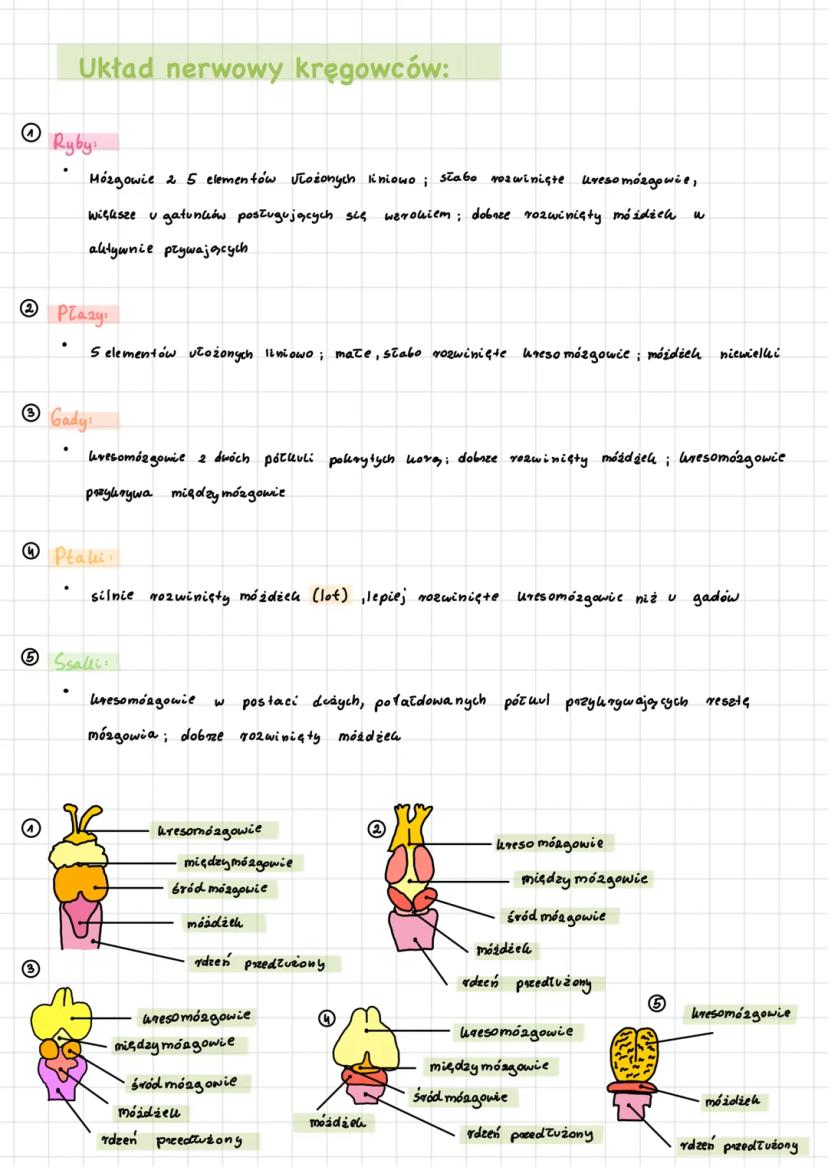 Układ nerwowy kręgowców:
① Ryby:
• Mózgowie z 5 elementów ułożonych liniowo ; słabo rozwinięte kresomózgowie,
większe u gatunków posługujących się wzrokiem ; dobrze rozwinięty móżdżek u
aktywnie pływających
② Płazy:
• 5 elementów ułożonych liniowo ; małe, słabo rozwinięte kreso mózgowie ; móżdżek niewielki
③ Gady:
• kresomózgowie z dwóch półkuli pokrytych korą; dobrze rozwinięty móżdżek ; kresomózgowie
przykrywa międzymózgowie
④ Ptaki:
• silnie rozwinięty móżdżek (lot) , lepiej rozwinięte kresomózgowie niż u gadów
⑤ Ssaki:
• kresomózgowie w postaci dużych, pofałdowanych półkul przykrywających resztę
mózgowia ; dobrze rozwinięty móżdżek
①
kresomózgowie
międzymózgowie
śródmózgowie
móżdżek
rdzeń przedłużony
②
kreso mózgowie
między mózgowie
śród mózgowie
móżdżek
rdzeń przedłużony
③
kresomózgowie
międzymózgowie
śródmózgowie
móżdżek
rdzeń przedłużony
④
kresomózgowie
międzymózgowie
śródmózgowie
móżdżek
rdzeń przedłużony
⑤
kresomózgowie
móżdżek
rdzeń przedłużony